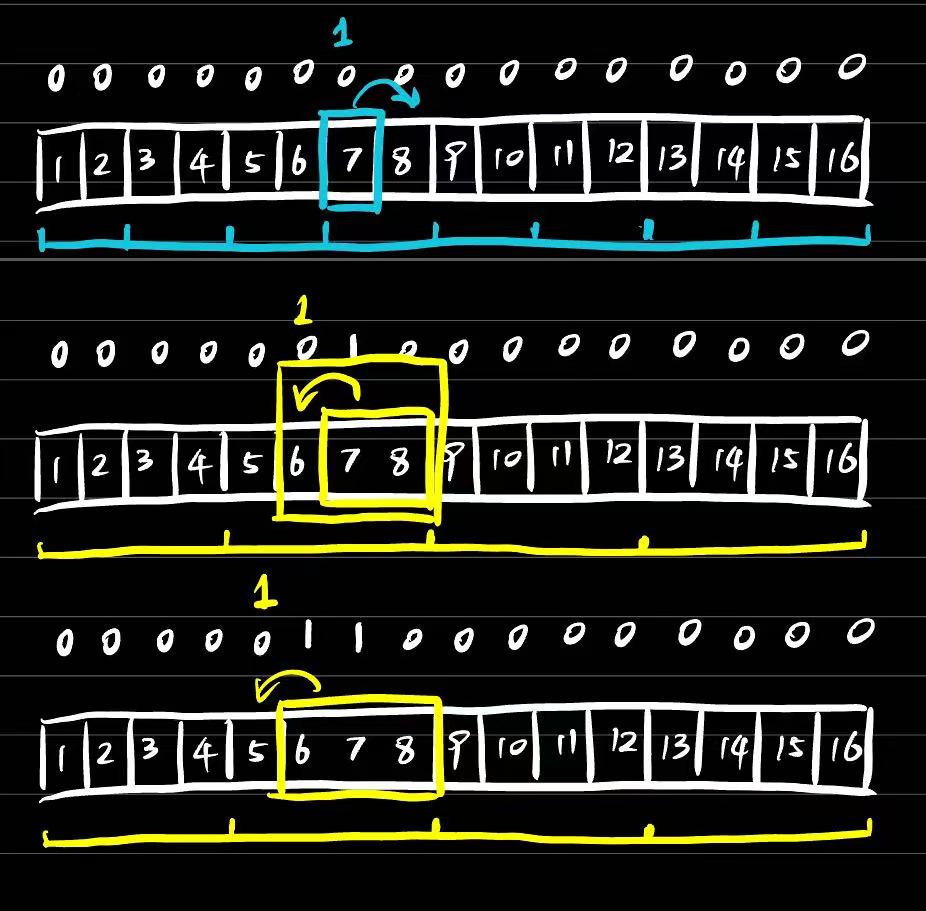 1
0 0 0 0 0 0 0 0 0 0 0 0 0 0 0 0
1 2 3 4 5 6 7 8 9 10 11 12 13 14 15 16
1
0 0 0 0 0 0 1 0 0 0 0 0 0 0 0 0
1 2 3 4 5 6 7 8 9 10 11 12 13 14 15 16
1
0 0 0 0 0 1 1 0 0 0 0 0 0 0 0 0
1 2 3 4 5 6 7 8 9 10 11 12 13 14 15 16